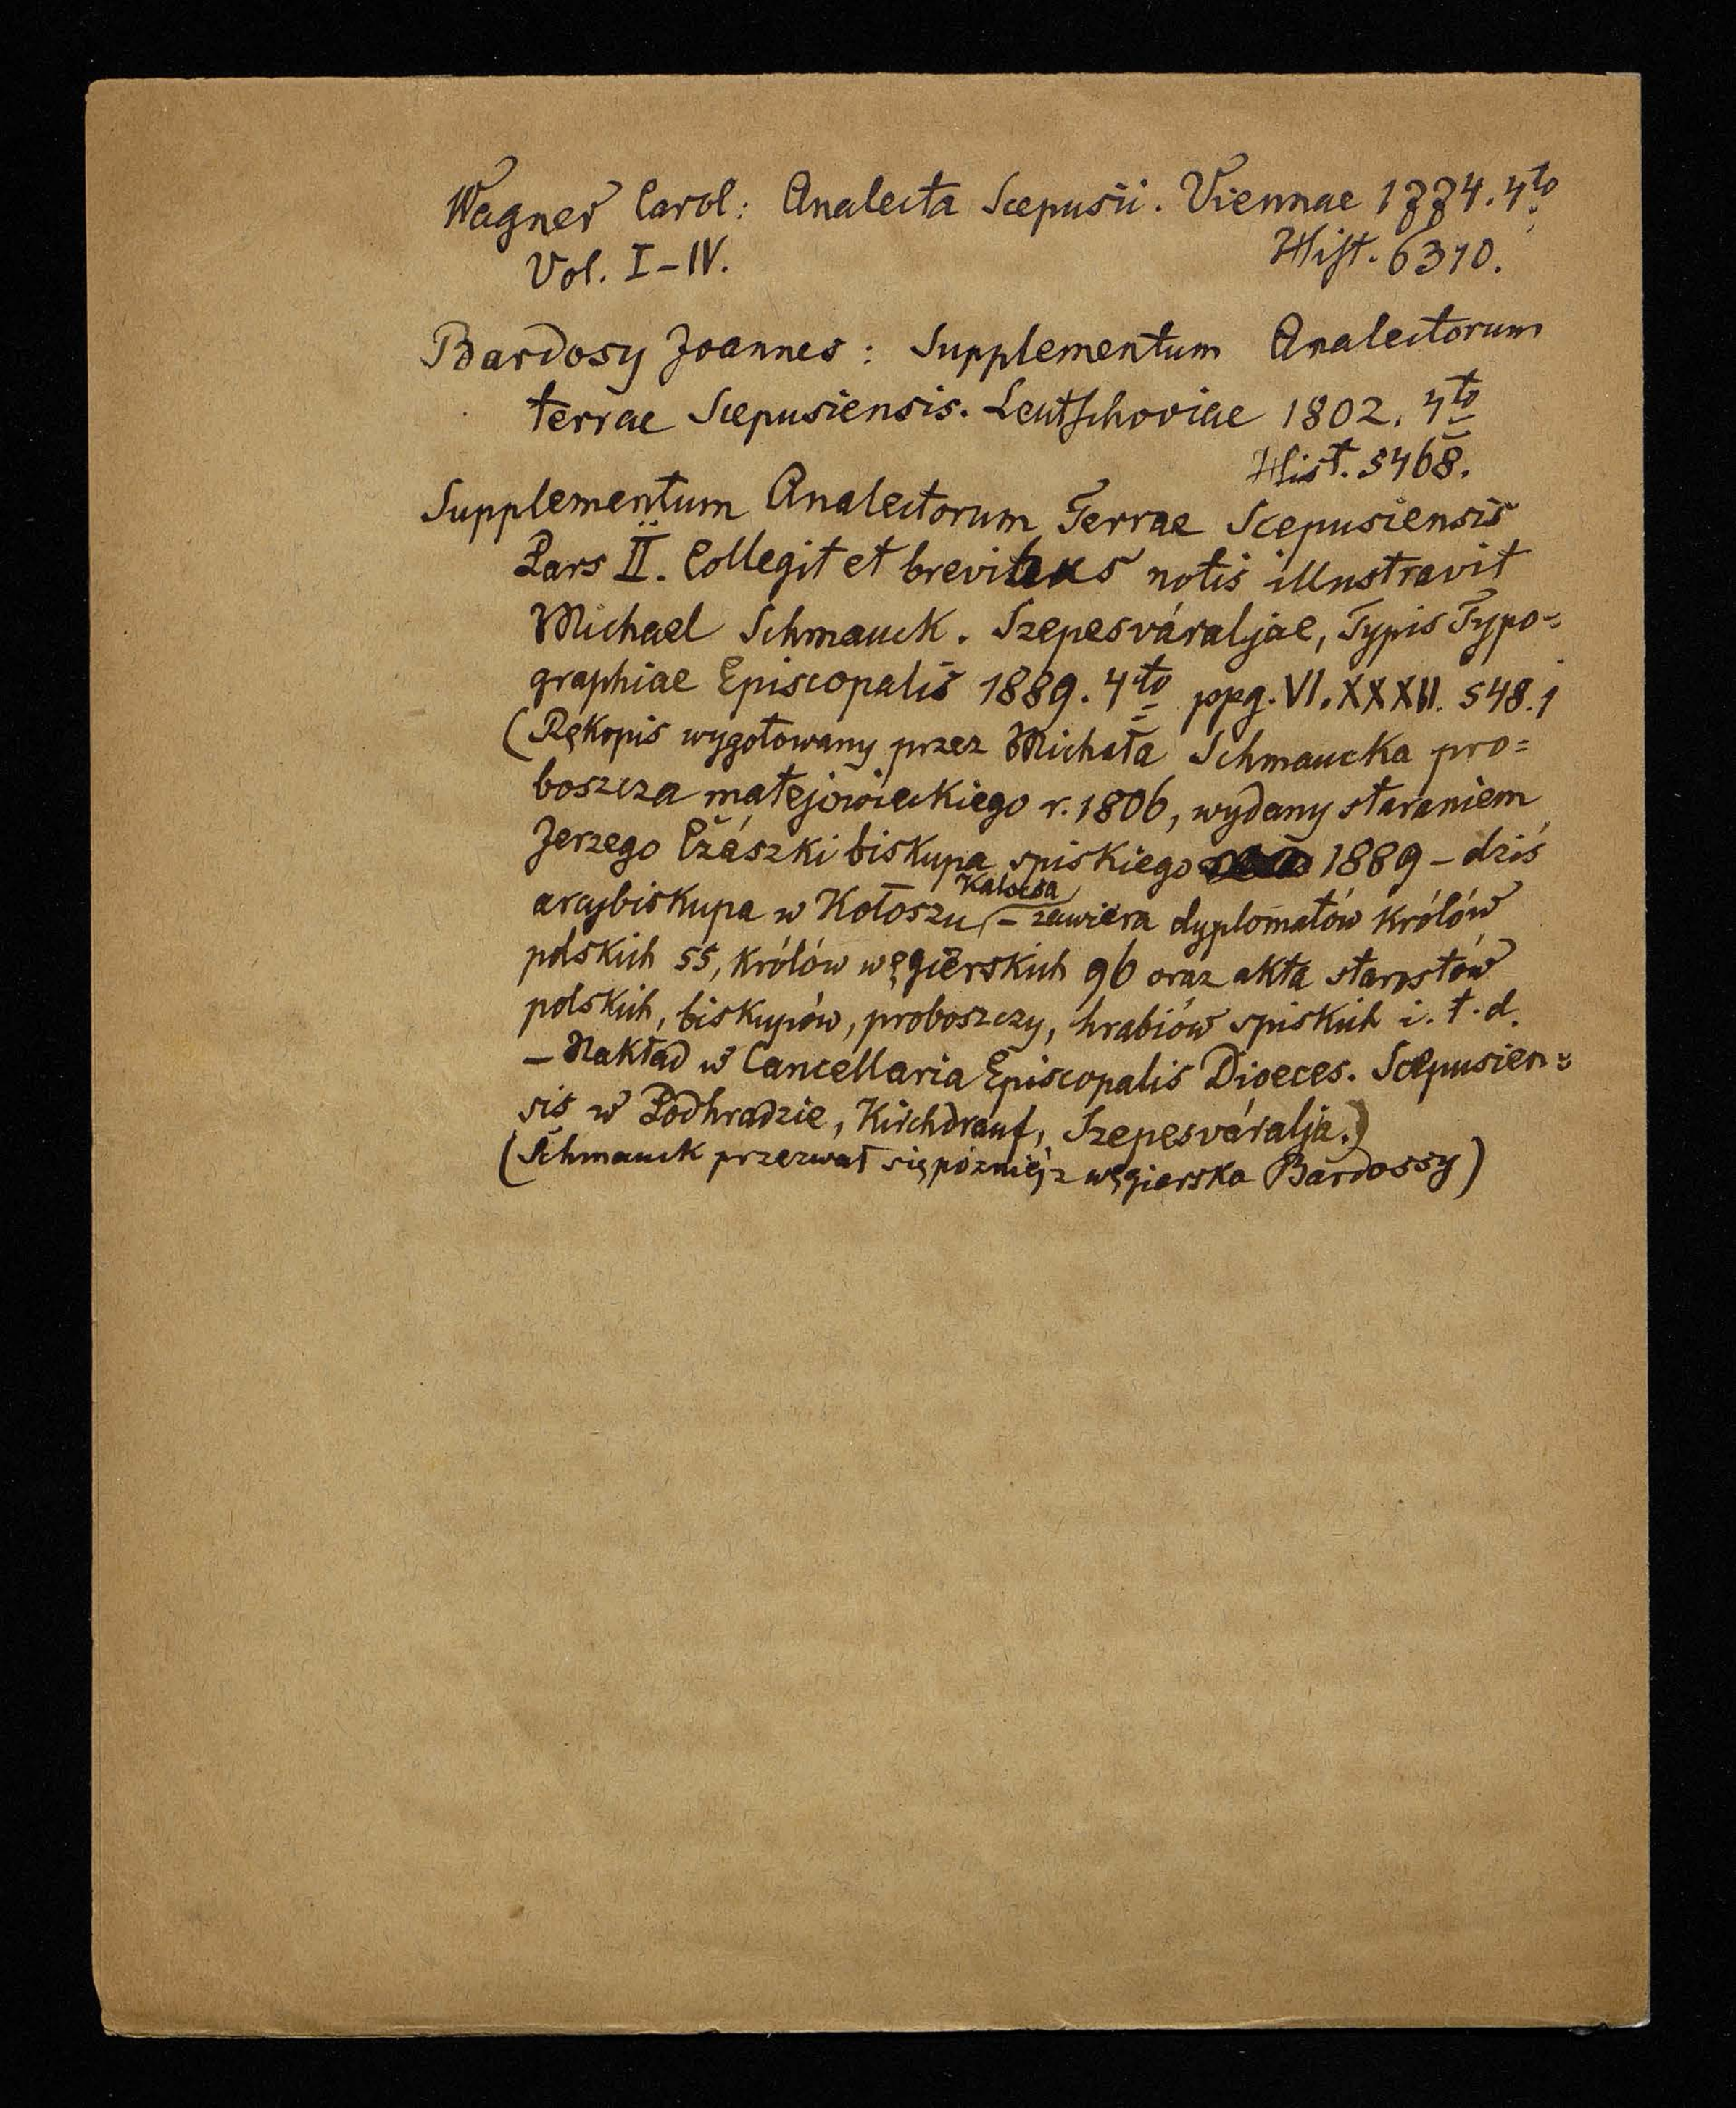 Wagner Carol: Analecta Scepusii. Viennae 1774. 4to
Vol. I–IV. Hist. 6310.
Bardosy Joannes: Supplementum Analectorum
terrae Scepusiensis. Leutschoviae 1802. 4to
Hist. 5468.
Supplementum Analectorum Terrae Scepusiensis
Pars II. Collegit et brevibus notis illustravit
Michael Schmauck. Szepesváraljae, Typis Typo=
graphiae Episcopalis 1889. 4to ppg. VI. XXXII. 548. j
(Rękopis wygotowany przez Michała Schmaucka pro=
boszcza matejowieckiego r. 1806, wydany staraniem
Jerzego Czászki biskupa spiskiego 1889 – dziś
arcybiskupa w Kołoszu (Kalocsa) – zawiera dyplomatów królów
polskich 55, królów węgierskich 96 oraz akta starostów
polskich, biskupów, proboszczy, hrabiów spiskich i. t. d.
– Nakład w Cancellaria Episcopalis Dioeces. Scepusien=
sis w Podhradzie, Kirchdrauf, Szepesváralja.)
(Schmauck przezwał się pózniej z węgierska Bardossy)